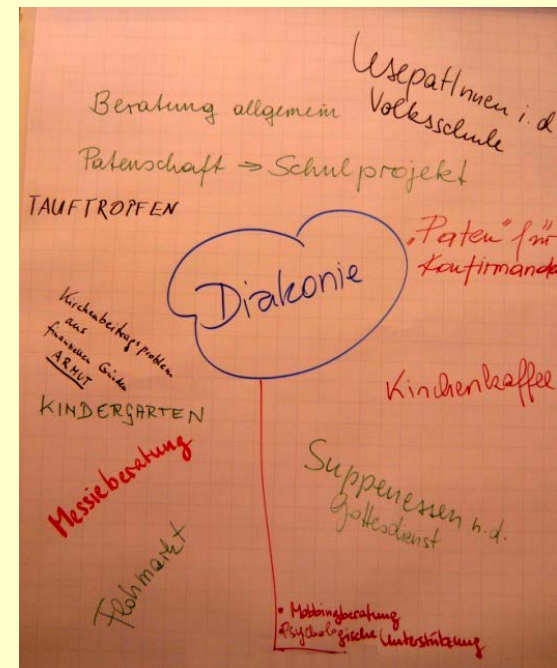 LesepatInnen i. d
Volksschule
Beratung allgemein
Patenschaft → Schulprojekt
TAUFTROPFEN
"Paten" für
Konfirmande
Diakonie
Kirchenbeitragsproblem
aus
finanziellen Gründen
ARMUT
KINDERGARTEN
Kirchenkaffee
Messieberatung
Suppenessen n. d.
Gottesdienst
Flohmarkt
• Mobbingberatung
• Psychologische Unterstützung